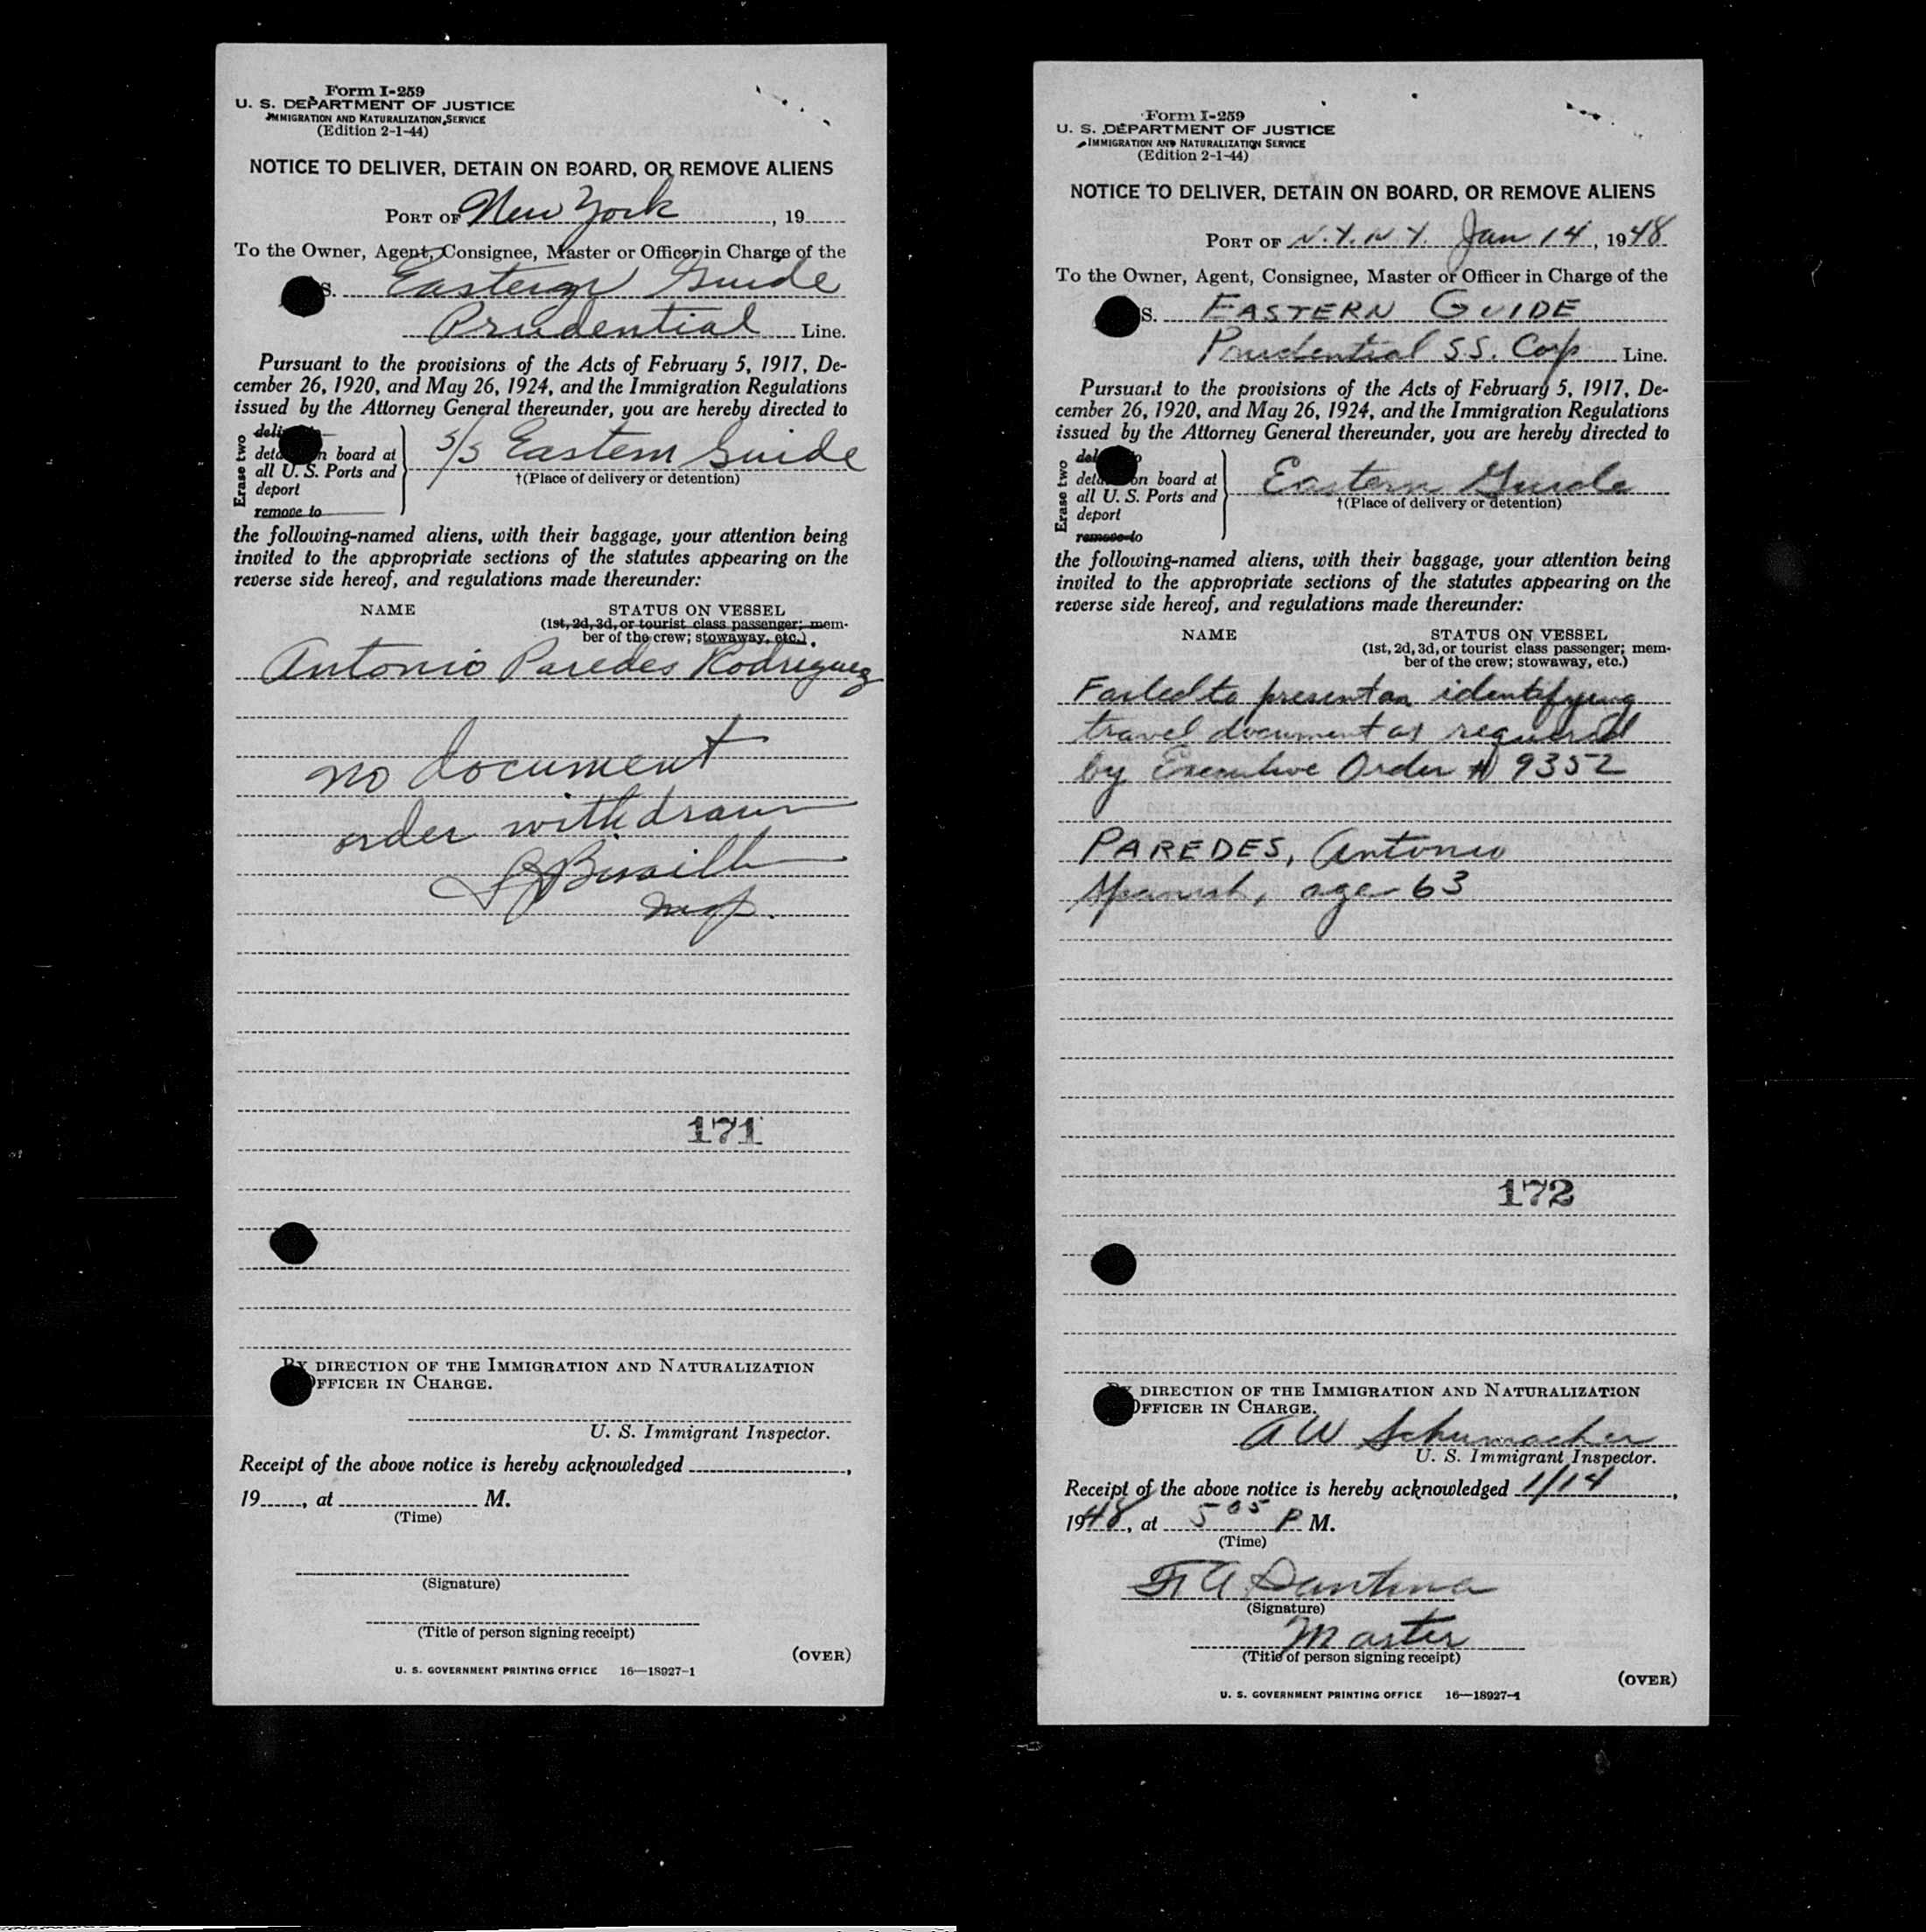 Form I-259
U. S. DEPARTMENT OF JUSTICE
IMMIGRATION AND NATURALIZATION SERVICE
(Edition 2-1-44)
NOTICE TO DELIVER, DETAIN ON BOARD, OR REMOVE ALIENS
PORT OF New York, 19
To the Owner, Agent, Consignee, Master or Officer in Charge of the
S. Eastern Guide
Prudential Line.
Pursuant to the provisions of the Acts of February 5, 1917, De-
cember 26, 1920, and May 26, 1924, and the Immigration Regulations
issued by the Attorney General thereunder, you are hereby directed to
Erase two
on board at
all U. S. Ports and
deport
remove to
S/S Eastern Guide
†(Place of delivery or detention)
the following-named aliens, with their baggage, your attention being
invited to the appropriate sections of the statutes appearing on the
reverse side hereof, and regulations made thereunder:
NAME STATUS ON VESSEL
(1st, 2d, 3d, or tourist class passenger; mem-
ber of the crew; stowaway, etc.)
Antonio Paredes Rodriguez
no document
order withdrawn
Insp.
171
BY DIRECTION OF THE IMMIGRATION AND NATURALIZATION
OFFICER IN CHARGE.
U. S. Immigrant Inspector.
Receipt of the above notice is hereby acknowledged ,
19 , at M.
(Time)
(Signature)
(Title of person signing receipt)
(OVER)
U. S. GOVERNMENT PRINTING OFFICE 16—18927-1
Form I-259
U. S. DEPARTMENT OF JUSTICE
IMMIGRATION AND NATURALIZATION SERVICE
(Edition 2-1-44)
NOTICE TO DELIVER, DETAIN ON BOARD, OR REMOVE ALIENS
PORT OF N.Y. N.Y. Jan 14, 1948
To the Owner, Agent, Consignee, Master or Officer in Charge of the
S. EASTERN GUIDE
Prudential SS. Corp Line.
Pursuant to the provisions of the Acts of February 5, 1917, De-
cember 26, 1920, and May 26, 1924, and the Immigration Regulations
issued by the Attorney General thereunder, you are hereby directed to
Erase two
on board at
all U. S. Ports and
deport
remove to
Eastern Guide
†(Place of delivery or detention)
the following-named aliens, with their baggage, your attention being
invited to the appropriate sections of the statutes appearing on the
reverse side hereof, and regulations made thereunder:
NAME STATUS ON VESSEL
(1st, 2d, 3d, or tourist class passenger; mem-
ber of the crew; stowaway, etc.)
Failed to present an identifying
travel document as required
by Executive Order # 9352
PAREDES, Antonio
Spanish, age 63
172
BY DIRECTION OF THE IMMIGRATION AND NATURALIZATION
OFFICER IN CHARGE.
A W Schumacher
U. S. Immigrant Inspector.
Receipt of the above notice is hereby acknowledged 1/14,
1948, at 5 05 P M.
(Time)
(Signature)
Master
(Title of person signing receipt)
(OVER)
U. S. GOVERNMENT PRINTING OFFICE 16—18927-1